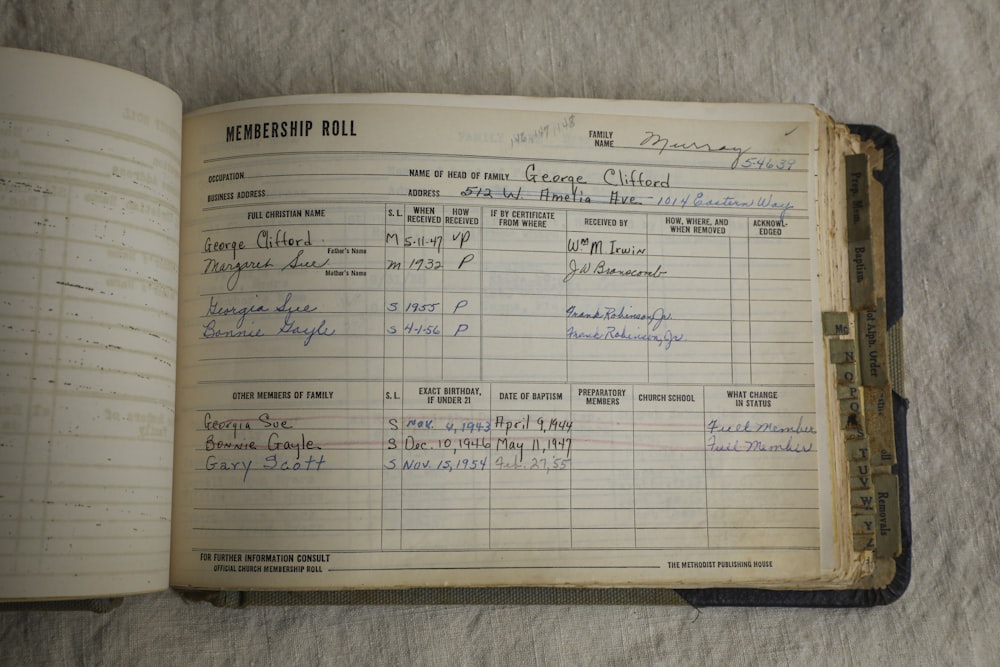 MEMBERSHIP ROLL
FAMILY NAME Murray
54639
OCCUPATION NAME OF HEAD OF FAMILY George Clifford
BUSINESS ADDRESS ADDRESS 512 W. Amelia Ave. 1014 Eastern Way
FULL CHRISTIAN NAME S. L. WHEN RECEIVED HOW RECEIVED IF BY CERTIFICATE FROM WHERE RECEIVED BY HOW, WHERE, AND WHEN REMOVED ACKNOWL-EDGED
George Clifford M 5-11-47 VP Wm M Irwin
Father's Name
Margaret Sue M 1932 P J.W. Branscomb
Mother's Name
Georgia Sue S 1955 P Frank Robinson, Jr.
Bonnie Gayle S 4-1-56 P Frank Robinson, Jr.
OTHER MEMBERS OF FAMILY S. L. EXACT BIRTHDAY, IF UNDER 21 DATE OF BAPTISM PREPARATORY MEMBERS CHURCH SCHOOL WHAT CHANGE IN STATUS
Georgia Sue S Nov. 4, 1943 April 9, 1944 Full Member
Bonnie Gayle S Dec. 10, 1946 May 11, 1947 Full Member
Gary Scott S Nov. 15, 1954 Feb. 27, 55
FOR FURTHER INFORMATION CONSULT
OFFICIAL CHURCH MEMBERSHIP ROLL THE METHODIST PUBLISHING HOUSE
Prep. Mem.
Baptism
Alph. Order
Removals
Mc
N
O
P
Q
T
U
V
W
Y
Z